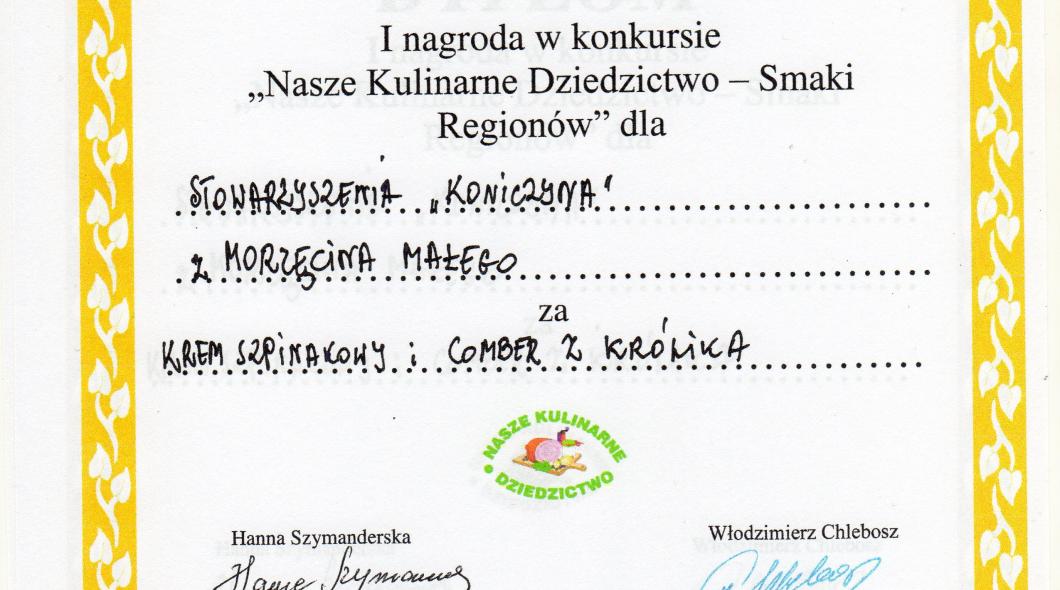 I nagroda w konkursie
„Nasze Kulinarne Dziedzictwo – Smaki
Regionów” dla
STOWARZYSZENIA „KONICZYNA"
z MORZĘCINA MAŁEGO
za
KREM SZPINAKOWY i COMBER Z KRÓLIKA
NASZE KULINARNE
DZIEDZICTWO
Hanna Szymanderska
Włodzimierz Chlebosz